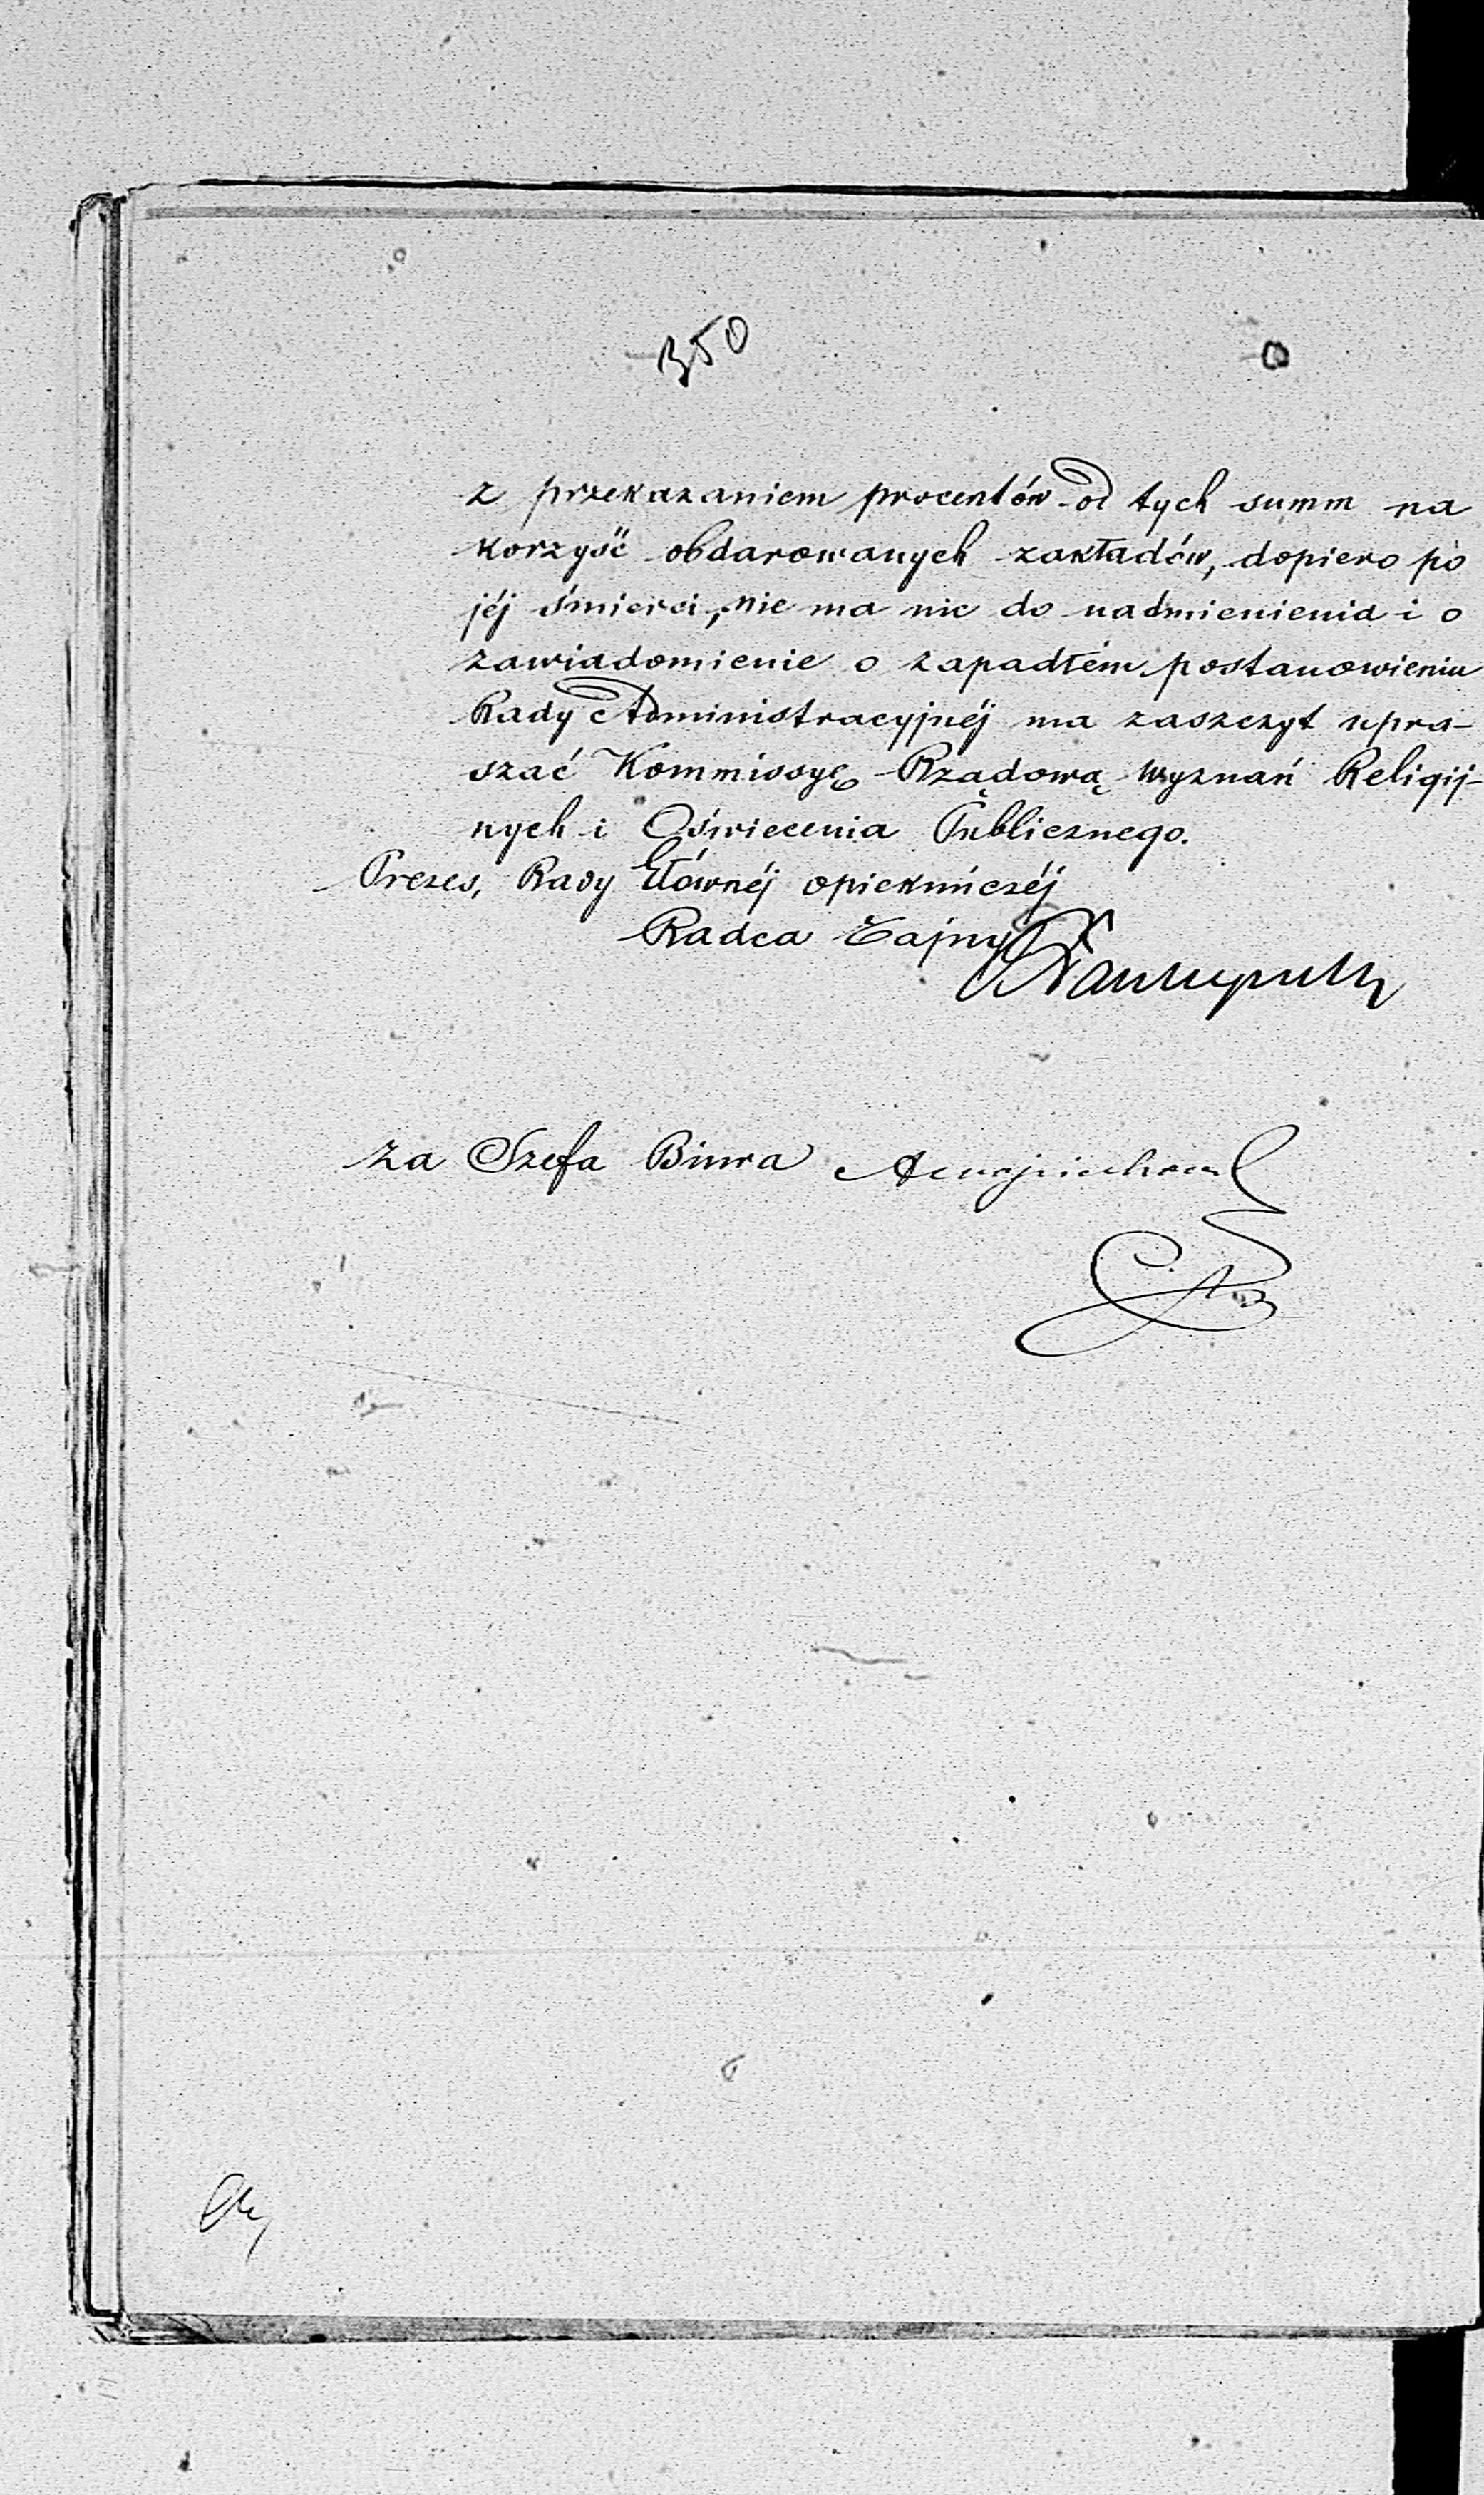 350
z przekazaniem procentów od tych summ na
korzyść obdarowanych zakładów, dopiero po
jéj śmierci, nie ma nic do nadmienienia i o
zawiadomienie o zapadłém postanowieniu
Rady Administracyjnéj ma zaszczyt upra-
szać Kommissyę Rządową Wyznań Religij-
nych i Oświecenia Publicznego.
Prezes, Rady Głównéj opiekuńczéj
Radca Tajny
za Szefa Biura